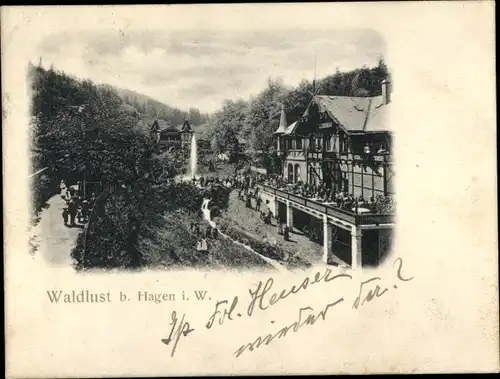 Waldlust b. Hagen i. W.
Ist Fol. Heuser
wieder da?